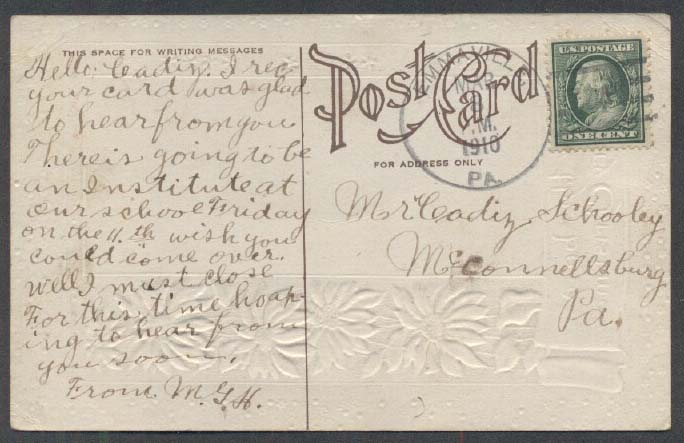 THIS SPACE FOR WRITING MESSAGES
Hello. Cadiz. I rec
your card was glad
to hear from you
There is going to be
an Institute at
our school Friday
on the 11th wish you
could come over.
well I must close
For this time hoap-
ing to hear from
you soon.
From. M.G.H.
Post Card
FOR ADDRESS ONLY
EMMAVILLE
MAR
M.
1910
PA.
U.S. POSTAGE
ONE CENT
Mr Cadiz Schooley
McConnellsburg
Pa.